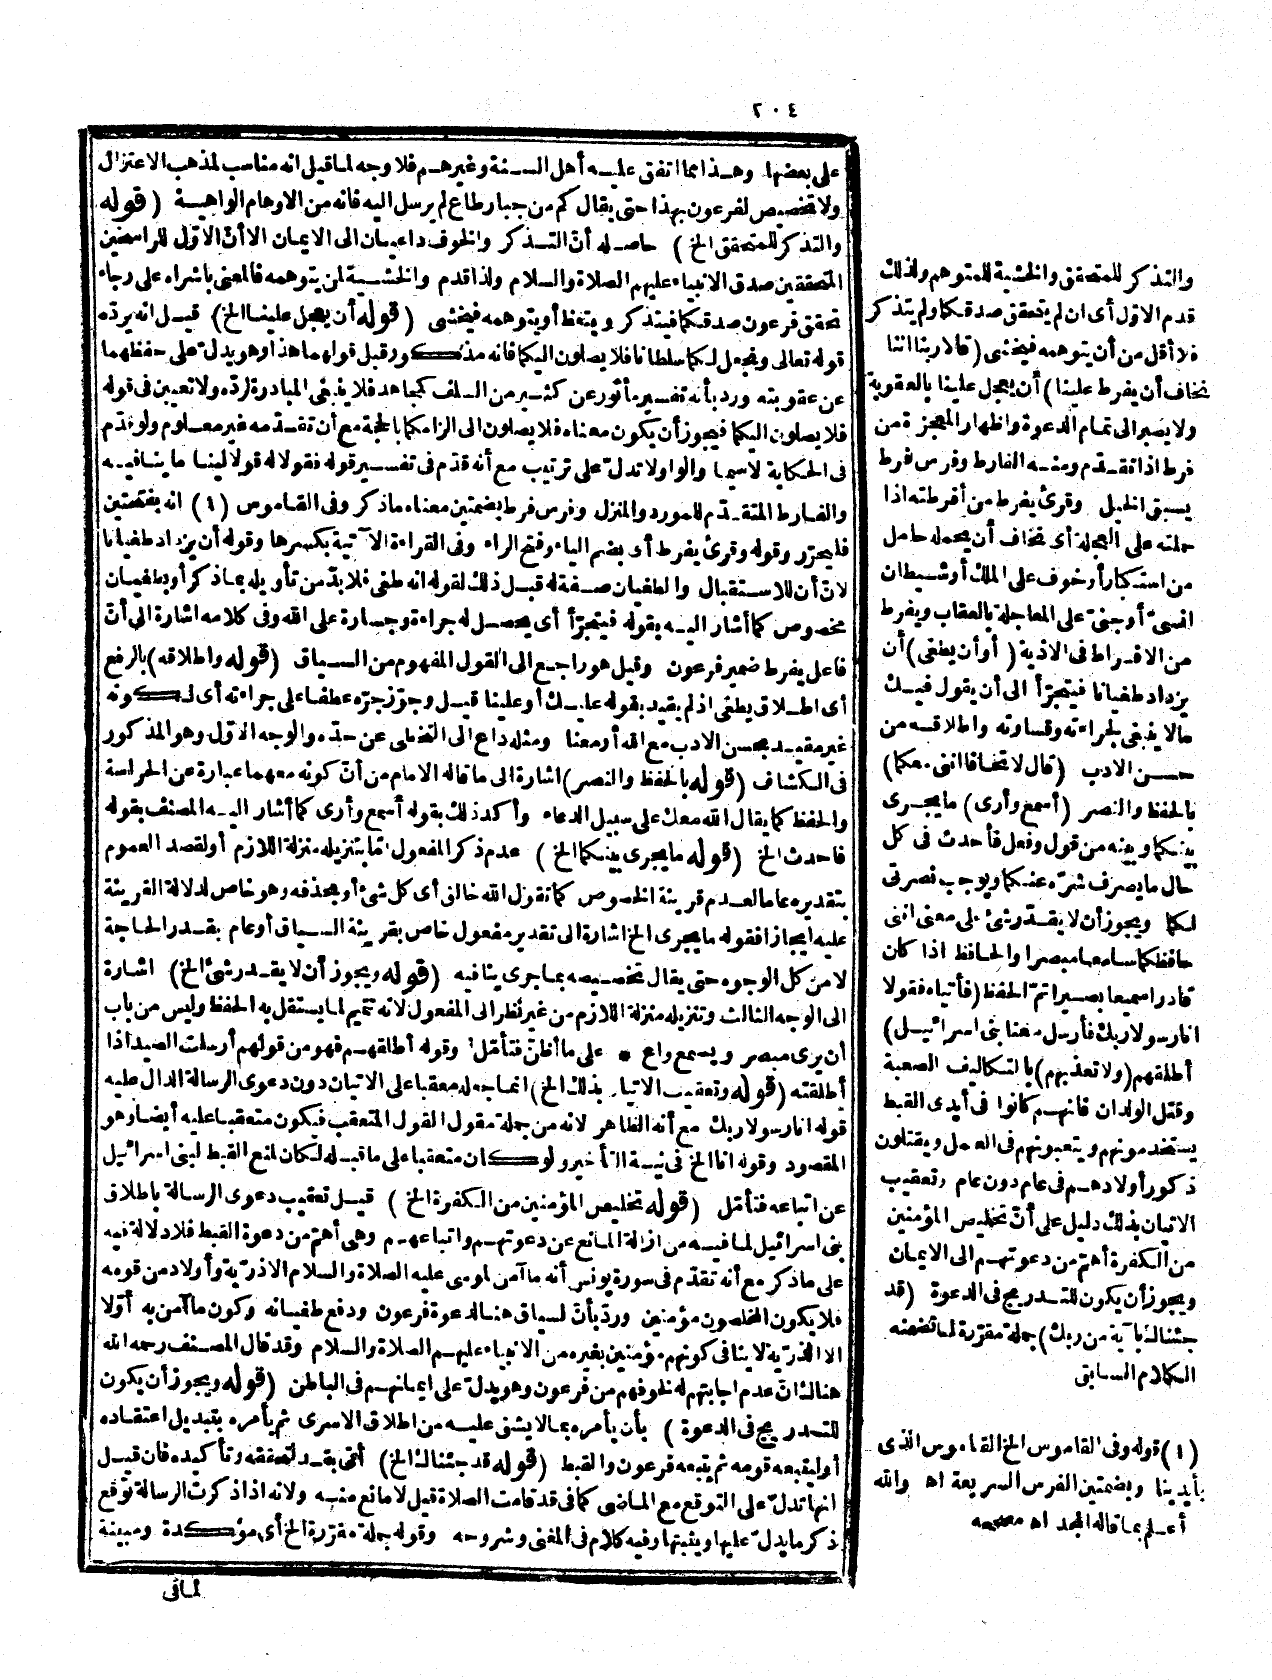 ٢٠٤
على بعضها وهذا مما اتفق عليه أهل السنة وغيرهم فلا وجه لما قيل انه مناسب لمذهب الاعتزال
ولا تخصيص لفرعون بهذا حتى يقال كم من جبار طاغ لم يرسل اليه فانه من الاوهام الواهية (قوله
والتذكر للمتحقق الخ) حاصله أنّ التذكر والخوف داعيان الى الايمان الا أنّ الاوّل للراسخين
المتحققين صدق الانبياء عليهم الصلاة والسلام ولذا قدم والخشية لمن يتوهمه فالمعنى باشراه على رجاء
تحقق فرعون صدقكما فيتذكر ويتعظ أو يتوهمه فيخشى (قوله أن يعجل علينا الخ) قيل انه يردّه
قوله تعالى ونجعل لكما سلطانا فلا يصلون اليكما فانه مذكور قبل قولهما هذا وهو يدلّ على حفظهما
عن عقوبته ورد بأنه تفسير مأثور عن كثير من السلف كمجاهد فلا ينبغى المبادرة لردّه ولا تعيين فى قوله
فلا يصلون اليكما فيجوز أن يكون معناه فلا يصلون الى الزامكما بالحجة مع أن تقدّمه غير معلوم ولو تقدّم
فى الحكاية لاسيما والواو لا تدلّ على ترتيب مع أنه قدّم فى تفسير قوله فقولا له قولا لينا ما ينافيه
والفارط المتقدّم للمورد والمنزل وفرس فرط بضمتين معناه ما ذكر وفى القاموس (١) انه بفتحتين
فليحرّر وقوله وقرئ يفرط أى بضم الياء وفتح الراء وفى القراءة الآتية بكسرها وقوله أن يزداد طغيانا
لانّ أن للاستقبال والطغيان صفة له قبل ذلك لقوله انه طغى فلا بدّ من تأويله بما ذكر أو بطغيان
مخصوص كما أشار اليه بقوله فيتجرّأ أى يحصل له جراءة وجسارة على الله وفى كلامه اشارة الى أنّ
فاعل يفرط ضمير فرعون وقيل هو راجع الى القول المفهوم من السياق (قوله واطلاقه) بالرفع
أى اطلاق يطغى اذ لم يقيد بقوله عليك أو علينا قيل وجوّز جرّه عطفا على جراءته أى لكونه
غير مقيد بحسن الادب مع الله أو معنا ومثله داع الى التخطى عن حدّه والوجه الاوّل وهو المذكور
فى الكشاف (قوله بالحفظ والنصر) اشارة الى ما قاله الامام من أنّ كونه معهما عبارة عن الحراسة
والحفظ كما يقال الله معك على سبيل الدعاء وأكد ذلك بقوله أسمع وأرى كما أشار اليه المصنف بقوله
فاحدث الخ (قوله ما يجرى بينكما الخ) عدم ذكر المفعول امّا بتنزيله منزلة اللازم أو لقصد العموم
بتقديره عاما لعدم قرينة الخصوص كما تقول الله خالق أى كل شئ أو بحذفه وهو خاص لدلالة القرينة
عليه ايجازا فقوله ما يجرى الخ اشارة الى تقدير مفعول خاص بقرينة السياق أو عام بقدر الحاجة
لا من كل الوجوه حتى يقال تخصيصه بما جرى ينافيه (قوله ويجوز أن لا يقدر شئ الخ) اشارة
الى الوجه الثالث وتنزيله منزلة اللازم من غير نظر الى المفعول لانه تتميم لما يستقل به الحفظ وليس من باب
أن يرى مبصر ويسمع واع * على ما أظنّ فتأمّل وقوله أطلقهم فهو من قولهم أرسلت الصيد اذا
أطلقته (قوله وتعقيب الاتيان بذلك الخ) انما جعله معقبا على الاتيان دون دعوى الرسالة الدال عليه
قوله انا رسولا ربك مع أنه الظاهر لانه من جملة مقول القول المتعقب فيكون متعقبا عليه أيضا وهو
المقصود وقوله انا الخ فى نية التأخير ولو كان متعقبا على ما قبله لكان لمنع القبط لبنى اسرائيل
عن اتباعه فتأمّل (قوله تخليص المؤمنين من الكفرة الخ) قيل تعقيب دعوى الرسالة باطلاق
بنى اسرائيل لما فيه من ازالة المانع عن دعوتهم واتباعهم وهى أهمّ من دعوة القبط فلا دلالة فيه
على ما ذكر مع أنه تقدّم فى سورة يونس أنه ما آمن لموسى عليه الصلاة والسلام الا ذرّية وأولاد من قومه
فلا يكون المخلصون مؤمنين وردّ بأنّ لسياق هنا لدعوة فرعون ودفع طغيانه وكون ما آمن به أوّلا
الا الذرّية لا ينافى كونهم مؤمنين بغيره من الانبياء عليهم الصلاة والسلام وقد قال المصنف رحمه الله
هنالك انّ عدم اجابتهم له لخوفهم من فرعون وهو يدلّ على ايمانهم فى الباطن (قوله ويجوز أن يكون
للتدريج فى الدعوة) بأن يأمره بما لا يشق عليه من اطلاق الاسرى ثم يأمره بتبديل اعتقاده
أو ليتبعه قومه ثم يتبعه فرعون والقبط (قوله قد جئناك الخ) أتى بقد لتحققه وتأكيده فان قيل
انها تدلّ على التوقع مع الماضى كما فى قد قامت الصلاة قيل لا مانع منه ولانه اذا ذكرت الرسالة توقع
ذكر ما يدلّ عليها ويثبتها وفيه كلام فى المغنى وشروحه وقوله جملة مقرّرة الخ أى مؤكدة ومبينة
لما فى
والتذكر للمتحقق والخشية للمتوهم ولذلك
قدم الاوّل أى ان لم يتحقق صدقكما ولم يتذكر
فلا أقل من أن يتوهمه فيخشى (قالا ربنا اننا
نخاف أن يفرط علينا) أن يعجل علينا بالعقوبة
ولا يصبر الى تمام الدعوة واظهار المعجزة من
فرط اذا تقدّم ومنه الفارط وفرس فرط
يسبق الخيل وقرئ يفرط من أفرطته اذا
حملته على العجلة أى نخاف أن يحمله حامل
من استكبار أو خوف على الملك أو شيطان
انسىّ أو جنىّ على المعاجلة بالعقاب ويفرط
من الافراط فى الاذية (أو أن يطغى) أن
يزداد طغيانا فيتجرّأ الى أن يقول فيك
ما لا ينبغى لجراءته وقساوته واطلاقه من
حسن الادب (قال لا تخافا اننى معكما)
بالحفظ والنصر (أسمع وأرى) ما يجرى
بينكما وبينه من قول وفعل فأحدث فى كل
حال ما يصرف شرّه عنكما ويوجب نصرتى
لكما ويجوز أن لا يقدّر شئ على معنى اننى
حافظكما سامعا مبصرا والحافظ اذا كان
قادرا سميعا بصيرا تمّ الحفظ (فأتياه فقولا
انا رسولا ربك فأرسل معنا بنى اسرائيل)
أطلقهم (ولا تعذبهم) بالتكاليف الصعبة
وقتل الولدان فانهم كانوا فى أيدى القبط
يستخدمونهم ويتعبونهم فى العمل ويقتلون
ذكور أولادهم فى عام دون عام وتعقيب
الاتيان بذلك دليل على أنّ تخليص المؤمنين
من الكفرة أهمّ من دعوتهم الى الايمان
ويجوز أن يكون للتدريج فى الدعوة (قد
جئناك بآية من ربك) جملة مقرّرة لما تضمنه
الكلام السابق
(١) قوله وفى القاموس الخ القاموس الذى
بأيدينا وبضمتين الفرس السريعة اه والله
أعلم بما قاله المجد اه مصححه